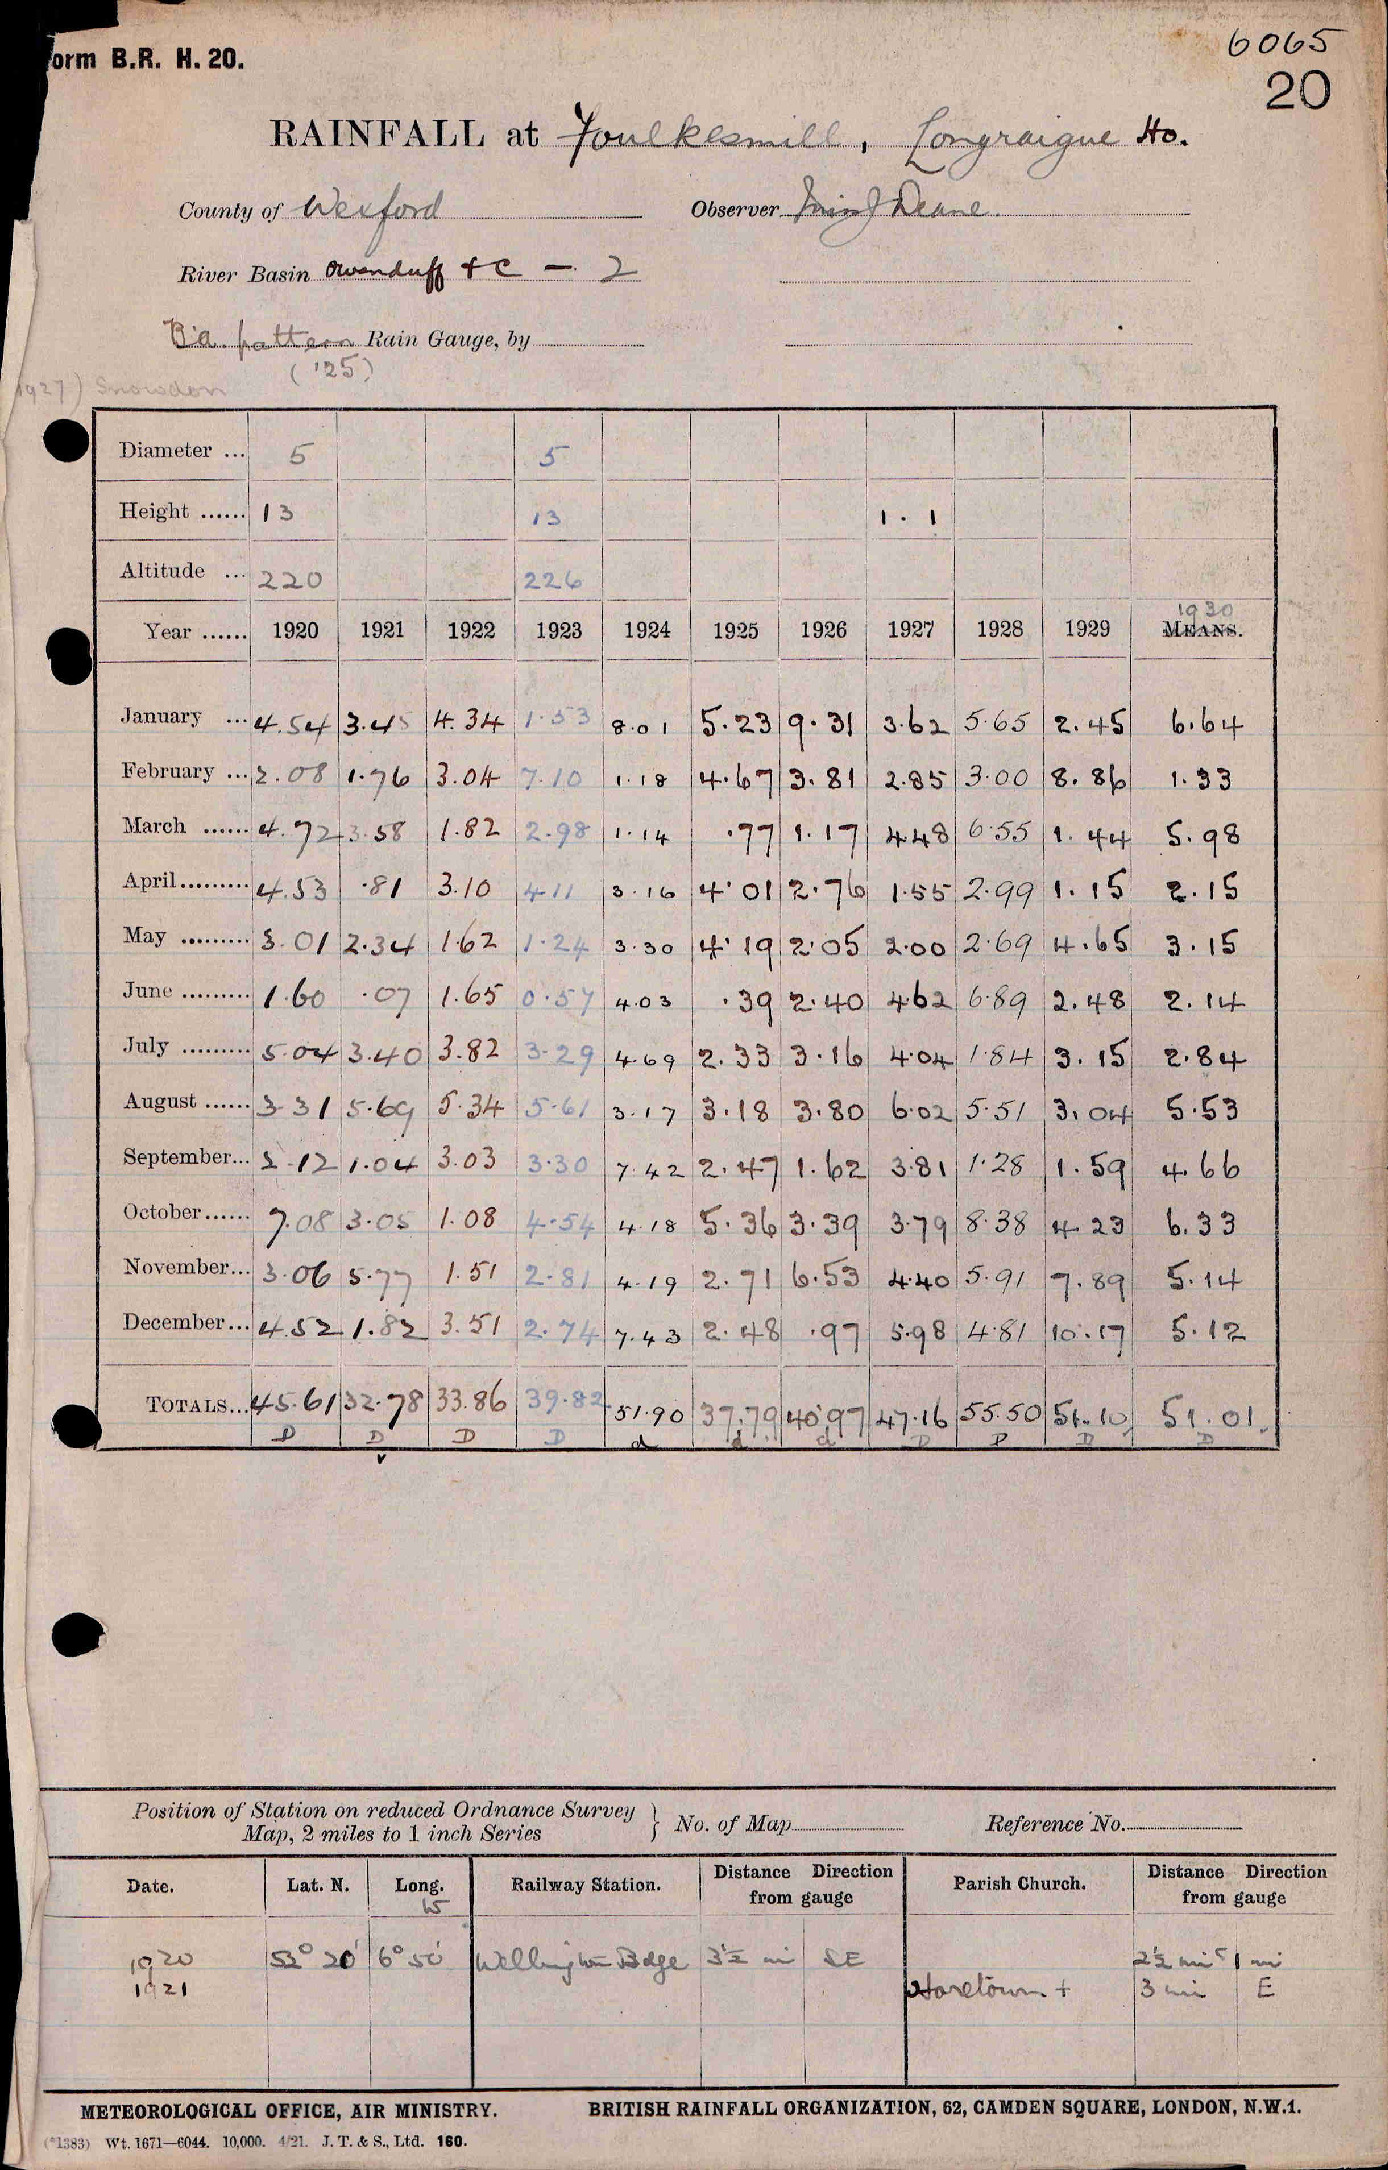 6065
orm B.R. H. 20.
20
RAINFALL at Foulkesmill, Longraigue Ho.
County of Wexford Observer Deane.
River Basin Owenduff & C — 2
pattern Rain Gauge, by
('25)
1927) Snowdon
Diameter ... 5 5
Height ...... 13 13 1.1
Altitude ... 220 226
1930
Year ...... 1920 1921 1922 1923 1924 1925 1926 1927 1928 1929 MEANS.
January ... 4.54 3.45 4.34 1.53 8.01 5.23 9.31 3.62 5.65 2.45 6.64
February ... 2.08 1.76 3.04 7.10 1.18 4.67 3.81 2.85 3.00 8.86 1.33
March ...... 4.72 3.58 1.82 2.98 1.14 .77 1.17 4.48 6.55 1.44 5.98
April......... 4.53 .81 3.10 4.11 3.16 4.01 2.76 1.55 2.99 1.15 2.15
May ......... 3.01 2.34 1.62 1.24 3.30 4.19 2.05 2.00 2.69 4.65 3.15
June ......... 1.60 .07 1.65 0.57 4.03 .39 2.40 4.62 6.89 2.48 2.14
July ......... 5.04 3.40 3.82 3.29 4.69 2.33 3.16 4.04 1.84 3.15 2.84
August ...... 3.31 5.69 5.34 5.61 3.17 3.18 3.80 6.02 5.51 3.04 5.53
September... 2.12 1.04 3.03 3.30 7.42 2.47 1.62 3.81 1.28 1.59 4.66
October...... 7.08 3.05 1.08 4.54 4.18 5.36 3.39 3.79 8.38 4.23 6.33
November... 3.06 5.77 1.51 2.81 4.19 2.71 6.53 4.40 5.91 7.89 5.14
December... 4.52 1.82 3.51 2.74 7.43 2.48 .97 5.98 4.81 10.17 5.12
TOTALS... 45.61 32.78 33.86 39.82 51.90 37.79 40.97 47.16 55.50 51.10 51.01
D D D D d d d D D D D
Position of Station on reduced Ordnance Survey
Map, 2 miles to 1 inch Series } No. of Map Reference No.
Date. Lat. N. Long. W Railway Station. Distance Direction from gauge Parish Church. Distance Direction from gauge
1920 52° 20' 6° 50' Wellington Bdge 3½ mi SE 2½ mi
1921 Horetown + 3 mi E
METEOROLOGICAL OFFICE, AIR MINISTRY. BRITISH RAINFALL ORGANIZATION, 62, CAMDEN SQUARE, LONDON, N.W.1.
(*1383) Wt. 1671—6044. 10,000. 4/21. J. T. & S., Ltd. 160.